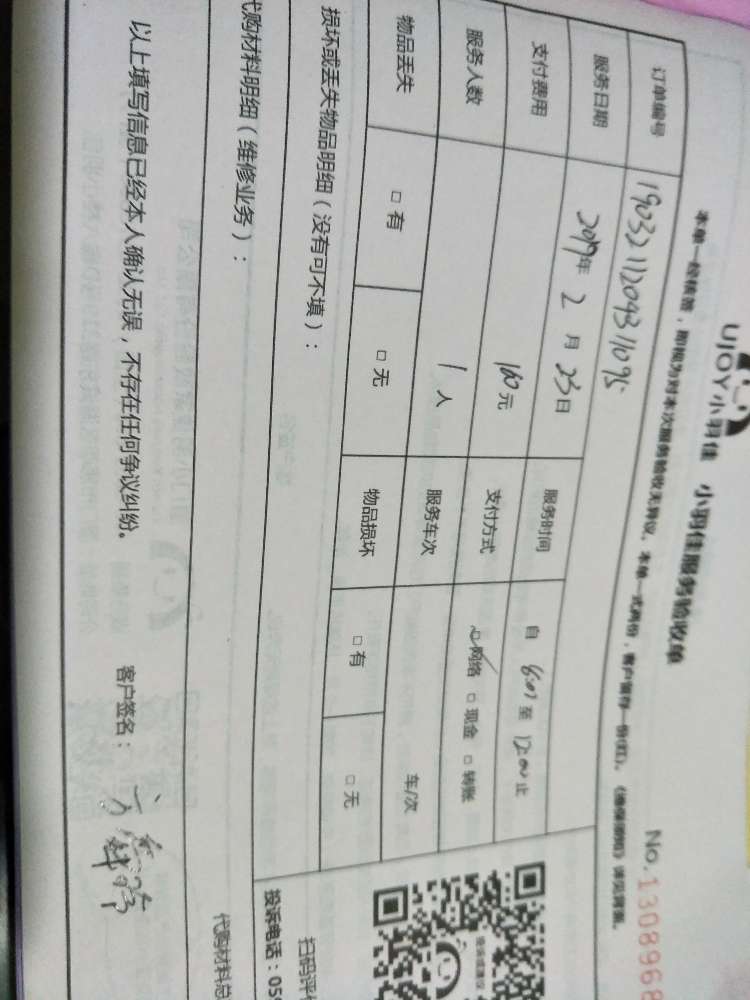 UJOY小羽佳 小羽佳服务验收单
No.1308968
本单一经核签，即视为对本次服务验收无异议。本单一式两份，客户留存一份(红)。《维保须知》详见背面。
订单编号 190321120931095
服务日期 2019年 2 月 23日 服务时间 自 8:00 至 12:00 止
支付费用 160元 支付方式 网络 □ 现金 □ 转账
服务人数 1 人 服务车次 车/次
物品丢失 □ 有 □ 无 物品损坏 □ 有 □ 无
损坏或丢失物品明细（没有可不填）：
代购材料明细（维修业务）：
代购材料总
扫码评价
投诉电话：059
以上填写信息已经本人确认无误，不存在任何争议纠纷。 客户签名：